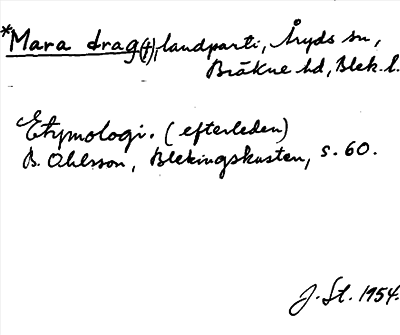 *Mara drag(t), landparti, Åryds sn,
Bräkne hd, Blek. l.
Etymologi. (efterleden)
B. Ohlsson, Blekingskusten, s. 60.
J. St. 1954.